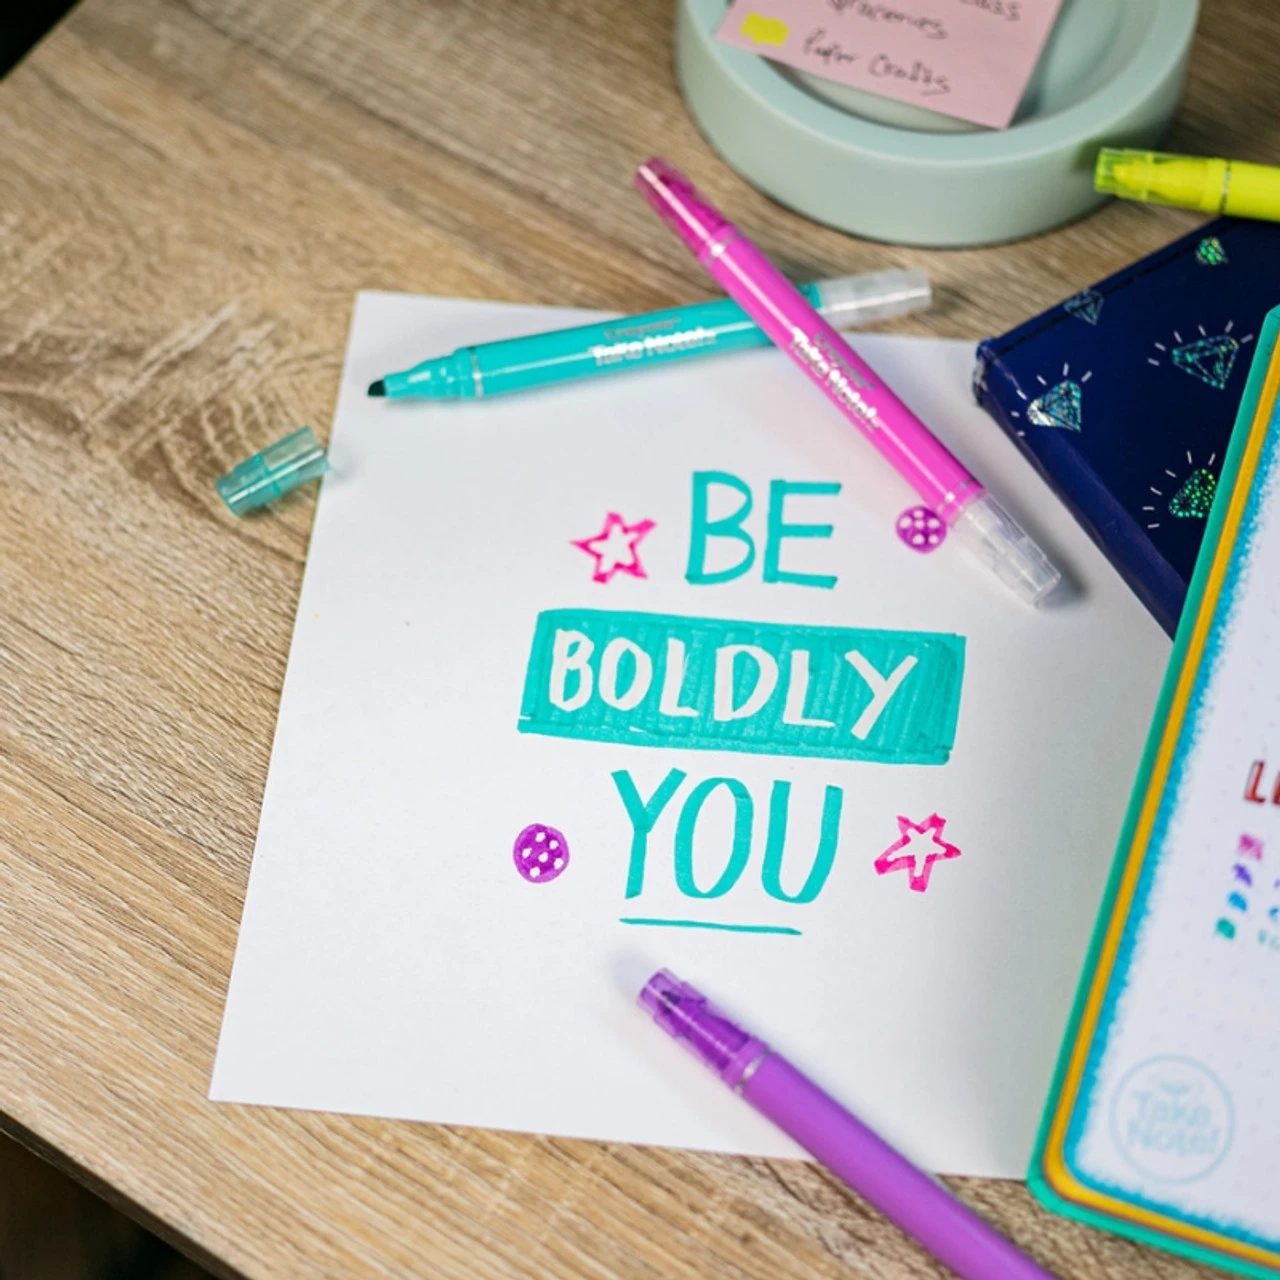 groceries
Paper Crafts
Crayola
Take Note!
Crayola
Take Note!
BE
BOLDLY
YOU
Take
Note!